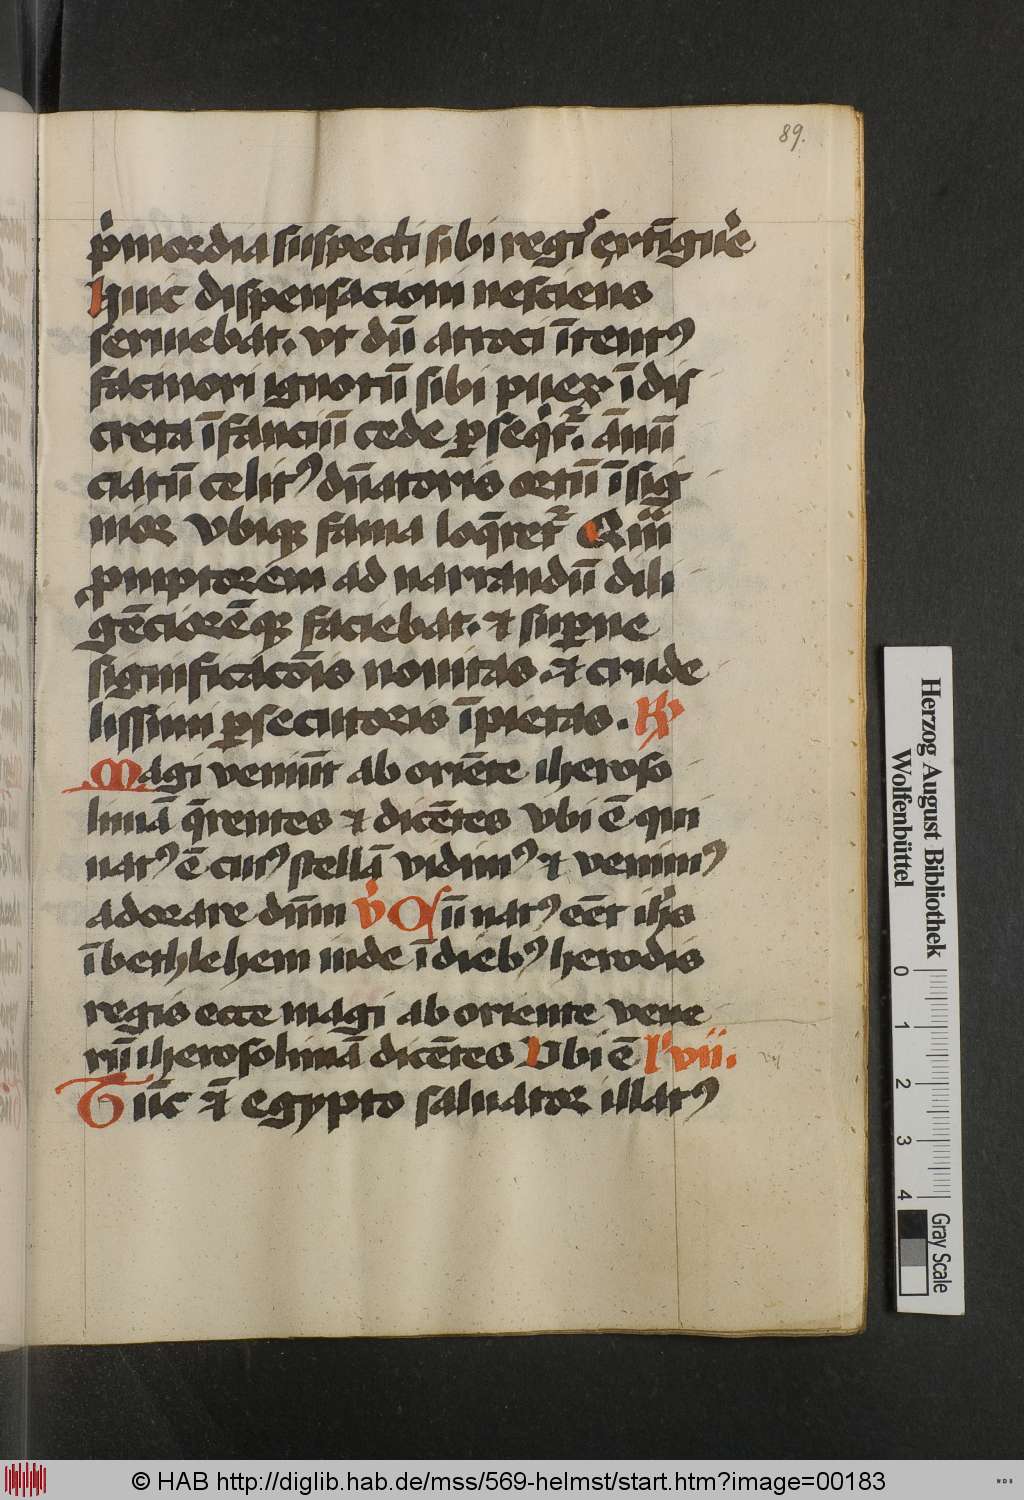 89.
p̍mordia suspecti sibi regis extīgue̍
Huic dispensacioni nesciens
seruiebat. vt dū attroci ītentꝰ
facinori ignotū sibi pueꝝ ī dis
creta īfanciū cede ꝑseqi̍t᷑. ānū
ciatū celitꝰ dn̄atoris ortū īsig
nior vbiqꝫ fama loq̄ret᷑ Quā
ꝓmptorem ad narrandū dili
gēciorēqꝫ faciebat. et suꝑne
significacōis nouitas. et crude
lissimi ꝑsecutoris īpietas. R̷
Magi veniūt ab oriēte iheroso
limā q̄rentes et dicētes vbi ē qui
natꝰ ē cuiꝰ stellā vidimꝰ et venimꝰ
adorare dn̄m v̍ Cū natꝰ eēt ih̄s
ī bethlehem iude ī diebꝰ herodis
regis ecce magi ab oriente vene
rūt iherosolimā dicētes Vbi ē l̍ vii.
vij
Tūc et̄ egypto saluator illatꝰ
Herzog August Bibliothek
Wolfenbüttel
0 1 2 3 4
Gray Scale
© HAB http://diglib.hab.de/mss/569-helmst/start.htm?image=00183